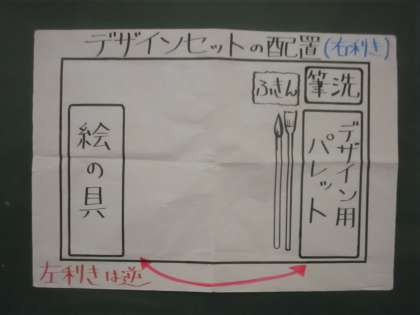 デザインセットの配置(右利き)
ふきん
筆洗
絵の具
デザイン用
パレット
左利きは逆